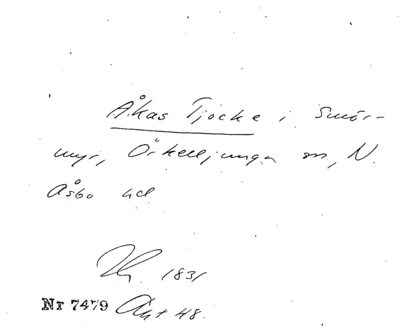 Åkas Tjocke i Smör-
myr, Örkelljunga sn, N.
Åsbo hd
1831
Nr 7479 Ant 48.